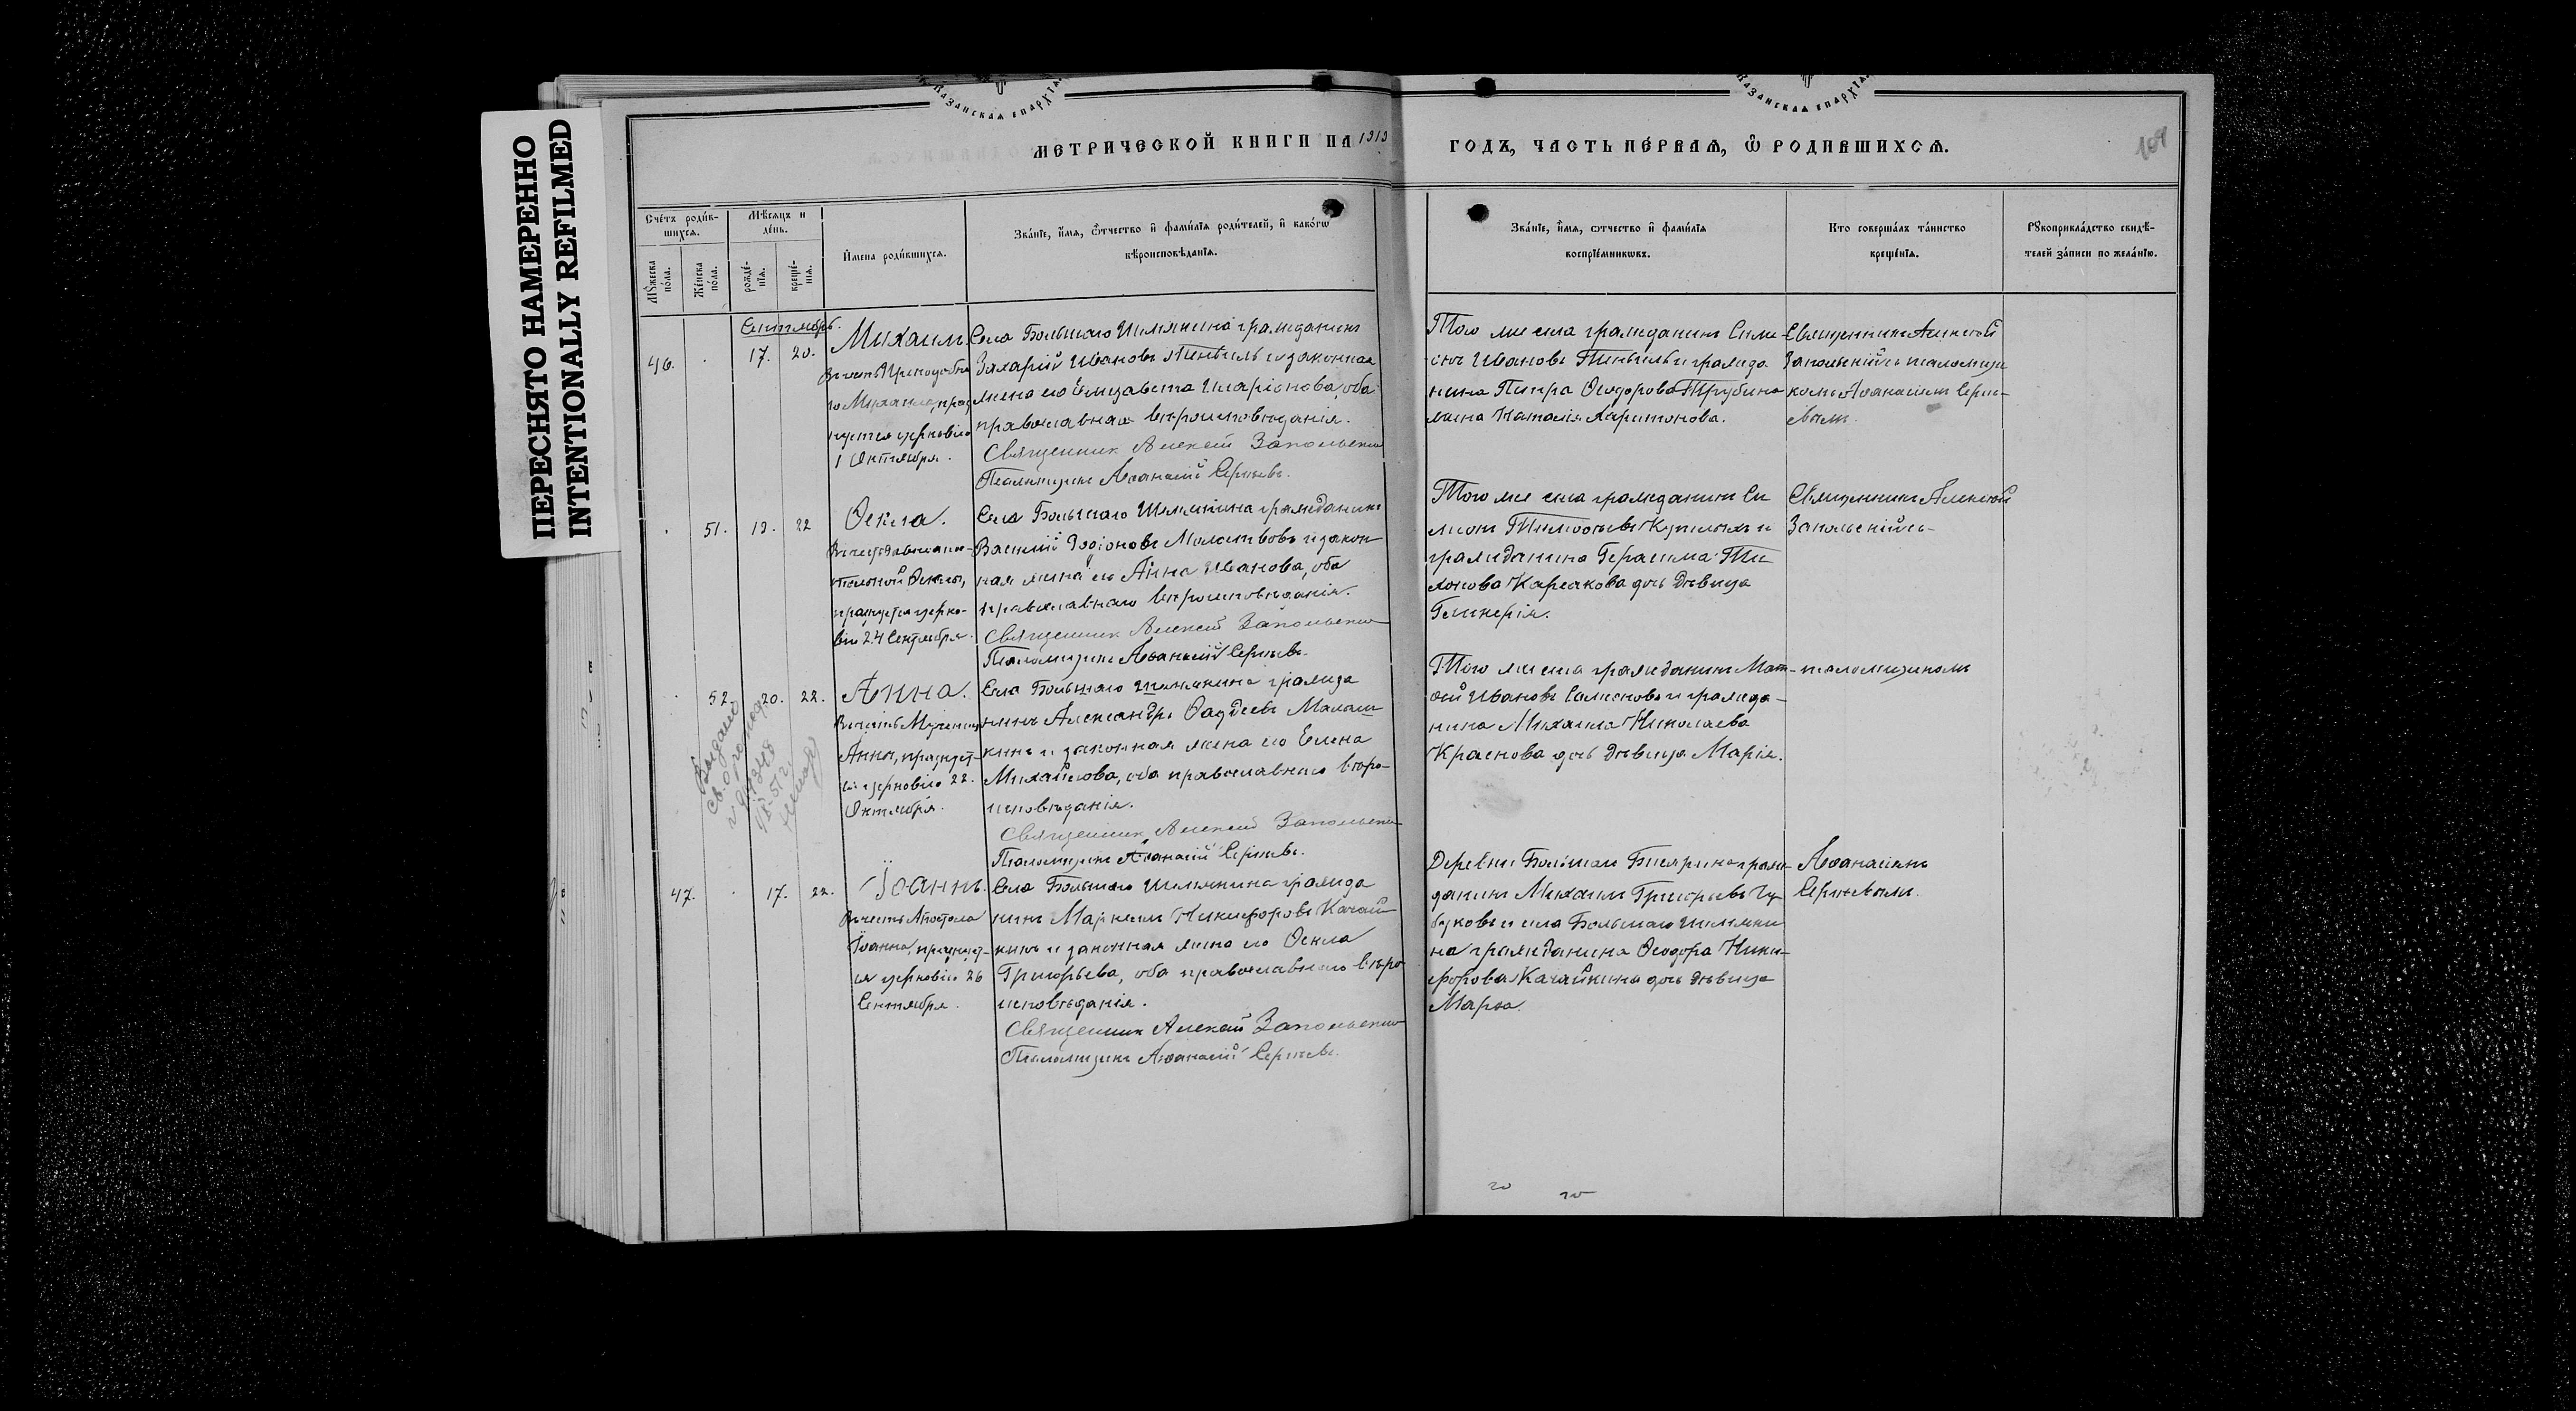 ПЕРЕСНЯТО НАМЕРЕННО
INTENTIONALLY REFILMED
КАЗАНСКАЯ ЕПАРХІЯ
КАЗАНСКАЯ ЕПАРХІЯ
МЕТРИЧЕСКОЙ КНИГИ НА 1919 ГОДЪ, ЧАСТЬ ПЕ́РВАЯ, Ѡ РОДИВШИХСЯ.
109
Сче́тъ роди́в-
шихся.
Мѣ́сяцъ и
де́нь.
Му́жеска
по́ла.
Же́нска
по́ла.
рожде́-
нія.
креще́-
нія.
И́мена роди́вшихся.
Зва́ніе, и́мя, ѻ́тчество и҆ фами́лія роди́телей, и҆ како́гѡ
вѣроисповѣ́данія.
Зва́ніе, и́мя, ѻтчество и҆ фами́лія
воспріе́мникѡвъ.
Кто соверша́лъ та́инство
креще́нія.
Рꙋкоприкла́дство свидѣ́-
телей за́писи по жела́нію.
Сентябрь.
46.
17.
20.
Михаилъ
Въ честь Преподобна
го Михаила, праз
нуется церковію
1 Октября.
Села Большаго Шемякина гражданинъ
Захарій Ивановъ и законная
жена его Елизавета Иларіонова, оба
православнаго вѣроисповѣданія.
Священник Алексей Запольский
Псаломщикъ Аѳанасій Сергѣевъ.
Того же села гражданинъ Симе-
онъ Ивановъ и гражда
нина Петра Ѳеодорова Трубина
жена Наталія Харитонова.
Священникъ Алексѣй
Запольскій съ псаломщи
комъ Аѳанасіемъ Серг-
ѣвымъ.
51.
19.
22
Ѳекла.
Ѳеклы,
празнуется церко-
вію 24 Сентября.
Села Большаго Шемякина гражданинъ
Василій Родіоновъ и закон
ная жена его Анна Иванова, оба
православнаго вѣроисповѣданія.
Священник Алексей Запольский
Псаломщикъ Аѳанасій Сергѣевъ.
Того же села гражданинъ Си
меонъ Тимоѳеевъ и
гражданина Герасима
Карсакова дочь дѣвица
Гликерія.
Священникъ Алексѣй
Запольскій съ
52.
20.
22.
Анна.
Въ честь Мученицы
Анны, празнует-
ся церковію 22
Октября.
Села Большаго Шемякина гражда
нинъ Александръ Ѳаддеевъ
и законная жена его Елена
Михайлова, оба православнаго вѣро-
исповѣданія.
Священник Алексей Запольский
Псаломщикъ Аѳанасій Сергѣевъ.
Того же села гражданинъ Мат-
ѳей Ивановъ и гражда-
нина Михаила Николаева
Краснова дочь дѣвица Марія.
псаломщикомъ
Выдано
47.
17.
22.
Іоаннъ.
Въ честь Апостола
Іоанна, празнует-
ся церковію 26
Сентября.
Села Большаго Шемякина гражда
нинъ Маркелъ Никифоровъ Качай
кинъ и законная жена его Ѳекла
Григорьева, оба православнаго вѣро
исповѣданія.
Священник Алексей Запольский
Псаломщикъ Аѳанасій Сергѣевъ.
Деревни граж-
данинъ Михаилъ Григорьевъ
и села Большаго Шемяки
на гражданина Ѳеодора Ники-
форова Качайкина дочь дѣвица
Марѳа.
Аѳанасіемъ
Сергѣевымъ.